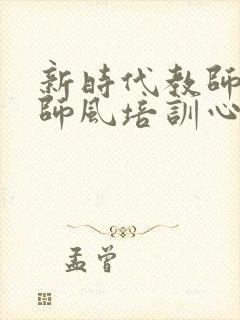 新時代教師
師風培訓心
孟曾